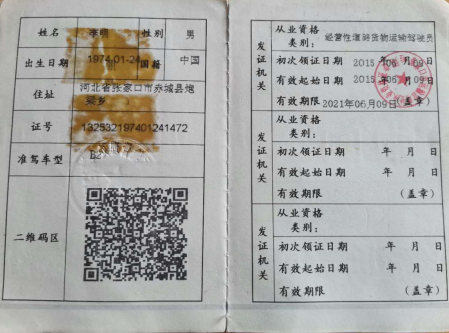 姓名 李明 性别 男
出生日期 1974-01-24 国籍 中国
住址 河北省张家口市赤城县炮
梁乡
证号 132532197401241472
准驾车型 B2
二维码区
发证机关
从业资格
类别： 经营性道路货物运输驾驶员
初次领证日期 2015 年 06 月 09 日
有效起始日期 2015 年 06 月 09 日
有效期限 2021年06月09日（盖章）
发证机关
从业资格
类别：
初次领证日期 年 月 日
有效起始日期 年 月 日
有效期限 （盖章）
发证机关
从业资格
类别：
初次领证日期 年 月 日
有效起始日期 年 月 日
有效期限 （盖章）